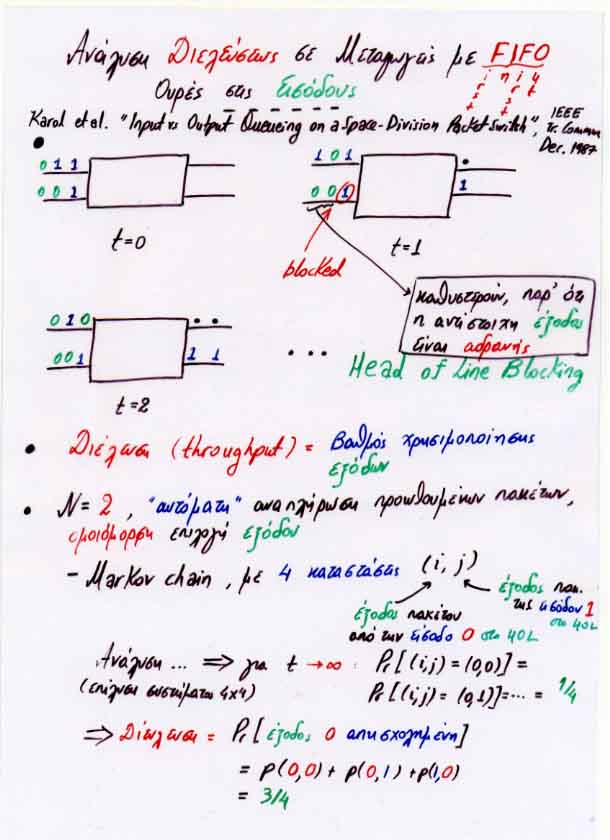 Ανάλυση Διελεύσεως σε Μεταγωγείς με FIFO
irst n irst ut
Ουρές στις Εισόδους
Karol et al. "Input vs Output Queueing on a Space-Division Packet Switch", IEEE Tr. Commun. Dec. 1987
0 1 1
0 0 1
t=0
1 0 1
0 0 1
1
t=1
blocked
καθυστερούν, παρ' ότι
η αντίστοιχη έξοδος
είναι αδρανής
0 1 0
0 0 1
1 1
t=2
...
Head of Line Blocking
Διέλευση (throughput) = Βαθμός χρησιμοποίησης
εξόδων
N=2, "αυτόματη" αναπλήρωση προωθουμένων πακέτων,
ομοιόμορφη επιλογή εξόδου
- Markov chain, με 4 καταστάσεις (i, j)
έξοδος πακ.
της εισόδου 1
στο HOL
έξοδος πακέτου
από την είσοδο 0 στο HOL
Ανάλυση ... ⇒ για t → ∞ : Pr[(i,j) = (0,0)] =
(επίλυση συστήματος 4x4) Pr[(i,j) = (0,1)] = ... = 1/4
⇒ Διέλευση = Pr[έξοδος 0 απησχολημένη]
= p(0,0) + p(0,1) + p(1,0)
= 3/4